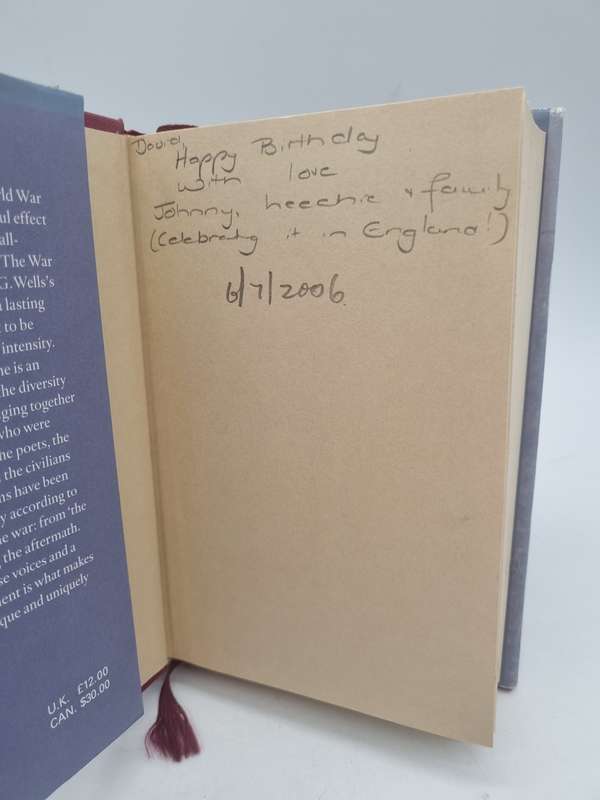 ld War
ul effect
all-
The War
G. Wells's
a lasting
t to be
intensity.
ne is an
the diversity
ging together
who were
he poets, the
the civilians
ns have been
y according to
he war: from 'the
the aftermath.
se voices and a
ent is what makes
que and uniquely
U.K. £12.00
CAN. $30.00
David,
Happy Birthday
with love
Johnny, heechie & family
(Celebrating it in England!)
6/7/2006.